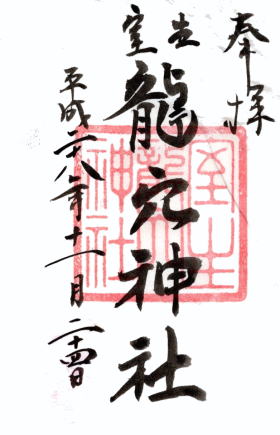 奉拝
室生
龍穴神社
平成二十八年十一月二十四日
室生
龍穴
神社